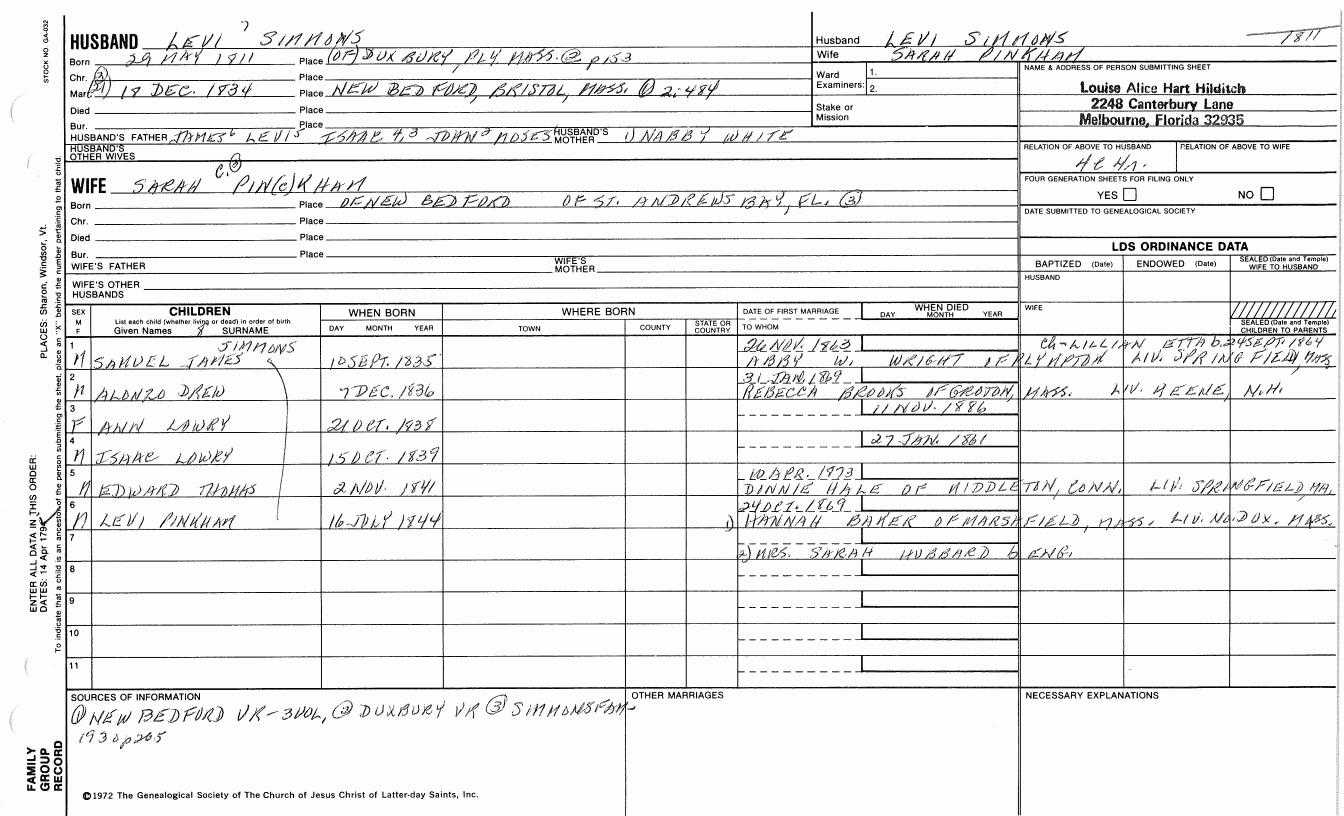 STOCK NO. GA-032
7
HUSBAND LEVI SIMMONS
Born 29 MAY 1811 Place (OF) DUXBURY, PLY, MASS. ② p153
Chr. ③ Place
Marr. 18 DEC. 1834 Place NEW BEDFORD, BRISTOL, MASS. ① 2:484
Died Place
Bur. Place
HUSBAND'S FATHER JAMES⁶ LEVI⁵ ISAAC 4,3 JOHN² MOSES¹ HUSBAND'S MOTHER 1) NABBY WHITE
HUSBAND'S OTHER WIVES
C. ③
WIFE SARAH PIN(C)KHAM
Born Place OF NEW BEDFORD OF ST. ANDREWS BAY, FL. ③
Chr. Place
Died Place
Bur. Place
WIFE'S FATHER WIFE'S MOTHER
WIFE'S OTHER HUSBANDS
Husband LEVI SIMMONS 1811
Wife SARAH PINKHAM
Ward Examiners: 1.
2.
Stake or Mission
NAME & ADDRESS OF PERSON SUBMITTING SHEET
Louise Alice Hart Hilditch
2248 Canterbury Lane
Melbourne, Florida 32935
RELATION OF ABOVE TO HUSBAND RELATION OF ABOVE TO WIFE
FOUR GENERATION SHEETS FOR FILING ONLY
YES NO
DATE SUBMITTED TO GENEALOGICAL SOCIETY
LDS ORDINANCE DATA
BAPTIZED (Date) ENDOWED (Date) SEALED (Date and Temple) WIFE TO HUSBAND
HUSBAND
WIFE
SEALED (Date and Temple) CHILDREN TO PARENTS
SEX M F CHILDREN WHEN BORN WHERE BORN DATE OF FIRST MARRIAGE WHEN DIED
List each child (whether living or dead) in order of birth
Given Names SURNAME DAY MONTH YEAR TOWN COUNTY STATE OR COUNTRY TO WHOM DAY MONTH YEAR
1 SIMMONS 26 NOV. 1863 Ch-LILLIAN ETTA b. 24 SEPT. 1864
M SAMUEL JAMES 10 SEPT. 1835 ABBY W. WRIGHT OF PLYMPTON LIV. SPRINGFIELD, MASS
2 31 JAN. 1869
M ALONZO DREW 7 DEC. 1836 REBECCA BROOKS OF GROTON, MASS. LIV. KEENE, N.H.
3 11 NOV. 1886
F ANN LOWRY 21 OCT. 1838
4 27 JAN. 1861
M ISAAC LOWRY 15 OCT. 1839
5 10 APR. 1873
M EDWARD THOMAS 2 NOV. 1841 DINNIE HALE OF MIDDLETON, CONN. LIV. SPRINGFIELD, MA.
6 24 OCT. 1869
M LEVI PINKHAM 16 JULY 1844 1) HANNAH BAKER OF MARSHFIELD, MASS. LIV. NO. DUX. MASS.
7
2) MRS. SARAH HUBBARD b ENG.
8
9
10
11
SOURCES OF INFORMATION
① NEW BEDFORD VR-3VOL, ② DUXBURY VR ③ SIMMONS FAM-
1930 p205
OTHER MARRIAGES
NECESSARY EXPLANATIONS
©1972 The Genealogical Society of The Church of Jesus Christ of Latter-day Saints, Inc.
FAMILY GROUP RECORD
ENTER ALL DATA IN THIS ORDER:
DATES: 14 Apr 1794
PLACES: Sharon, Windsor, Vt.
To indicate that a child is an ancestor of the person submitting the sheet, place an "X" behind the number pertaining to that child.